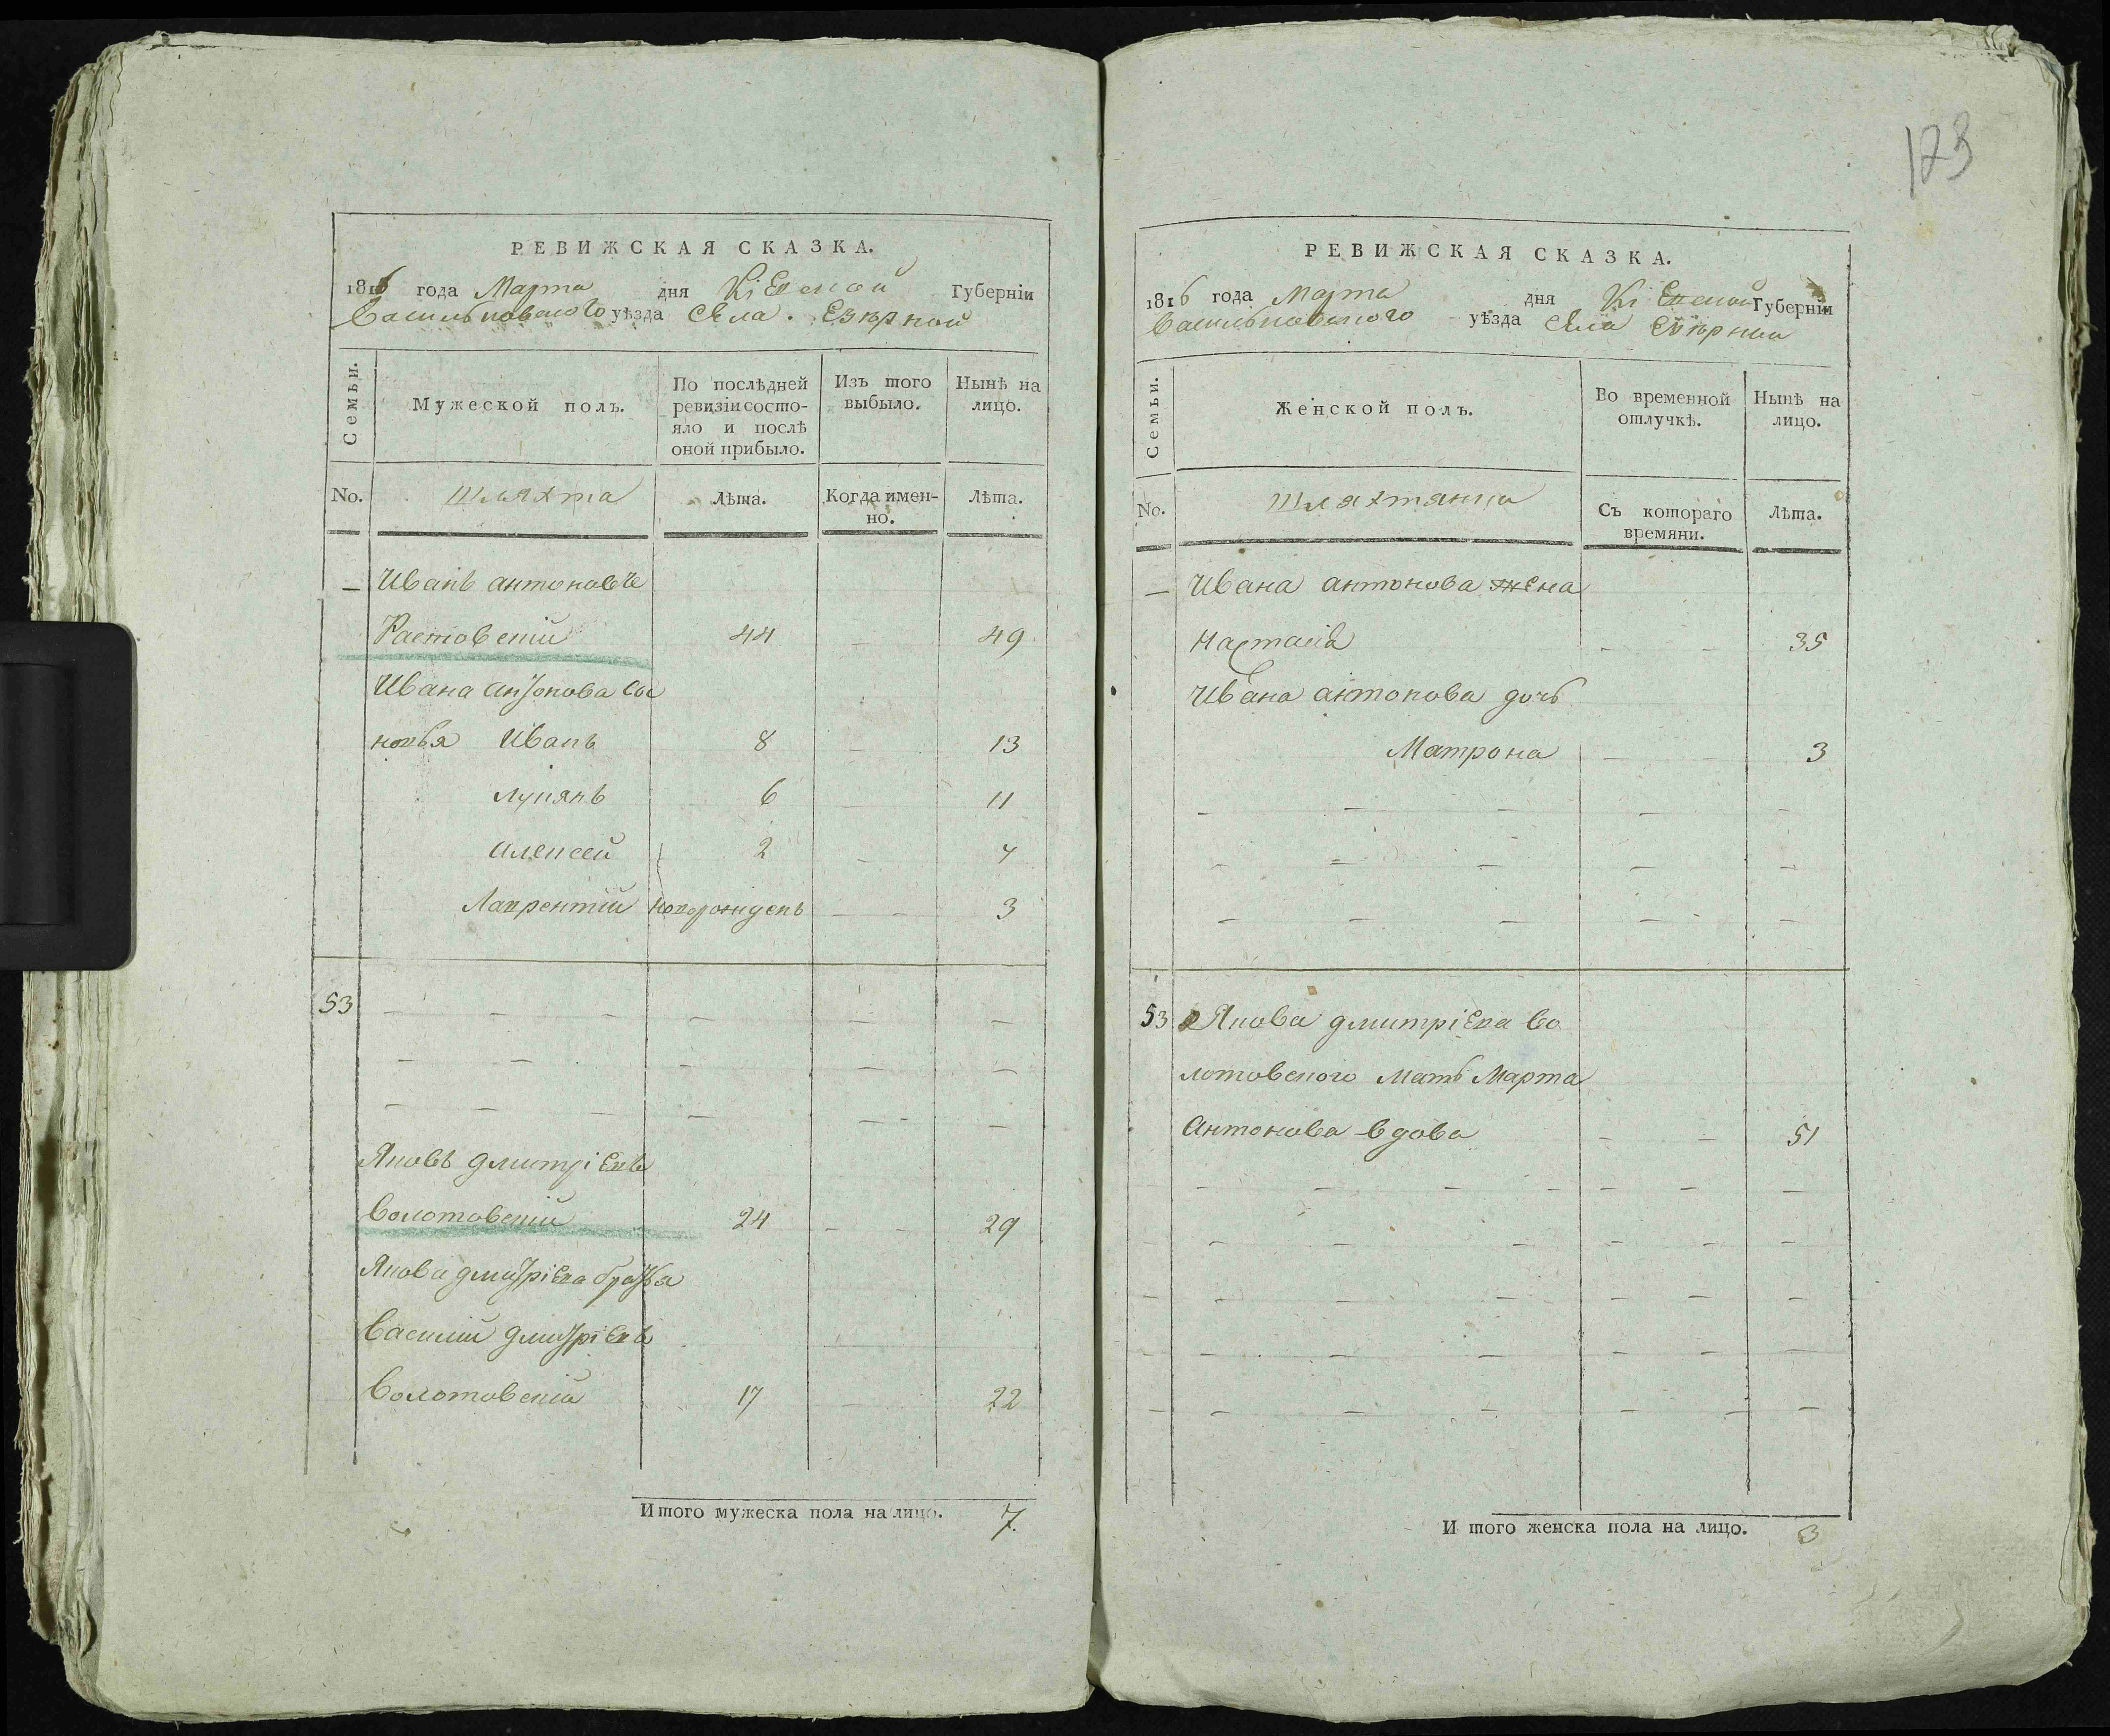 РЕВИЖСКАЯ СКАЗКА.
1816 года Марта дня Кіевской Губерніи
Васильковского уѣзда Села Езѣрной
Семьи.
Мужеской полъ.
По послѣдней ревизіи состояло и послѣ оной прибыло.
Изъ того выбыло.
Нынѣ на лицо.
No.
Шляхта
Лѣта.
Когда именно.
Лѣта.
Иванъ антоновъ
Растовскій 44 — 49
Ивана антонова сы
новья Иванъ 8 — 13
лукянъ 6 11
алексей 2 — 7
Лаврентій новорожденъ — — 3
53
Яковъ дмитріевъ
Волотовскій 24 — — 29
Якова дмитріева братья
Василий дмитріевъ
Волотовскій 17 — 22
Итого мужеска пола на лицо. 7.
123
РЕВИЖСКАЯ СКАЗКА.
1816 года Марта дня Кіевской Губерніи
Васильковского уѣзда Села Езѣрной
Семьи.
Женской полъ.
Во временной отлучкѣ.
Нынѣ на лицо.
No.
Шляхтянки
Съ котораго времяни.
Лѣта.
Ивана антонова жена
Настасія — — 35
Ивана антонова дочь
Матрона — — 3
53 Якова дмитріева Во
лотовского мать Марта
Антонова вдова — — 51
Итого женска пола на лицо. 3